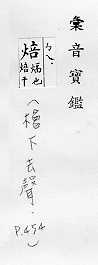 彙音寶鑑
ㄅㄟˋ
焙
煏也
焙干
(檜下去聲.
P.454)